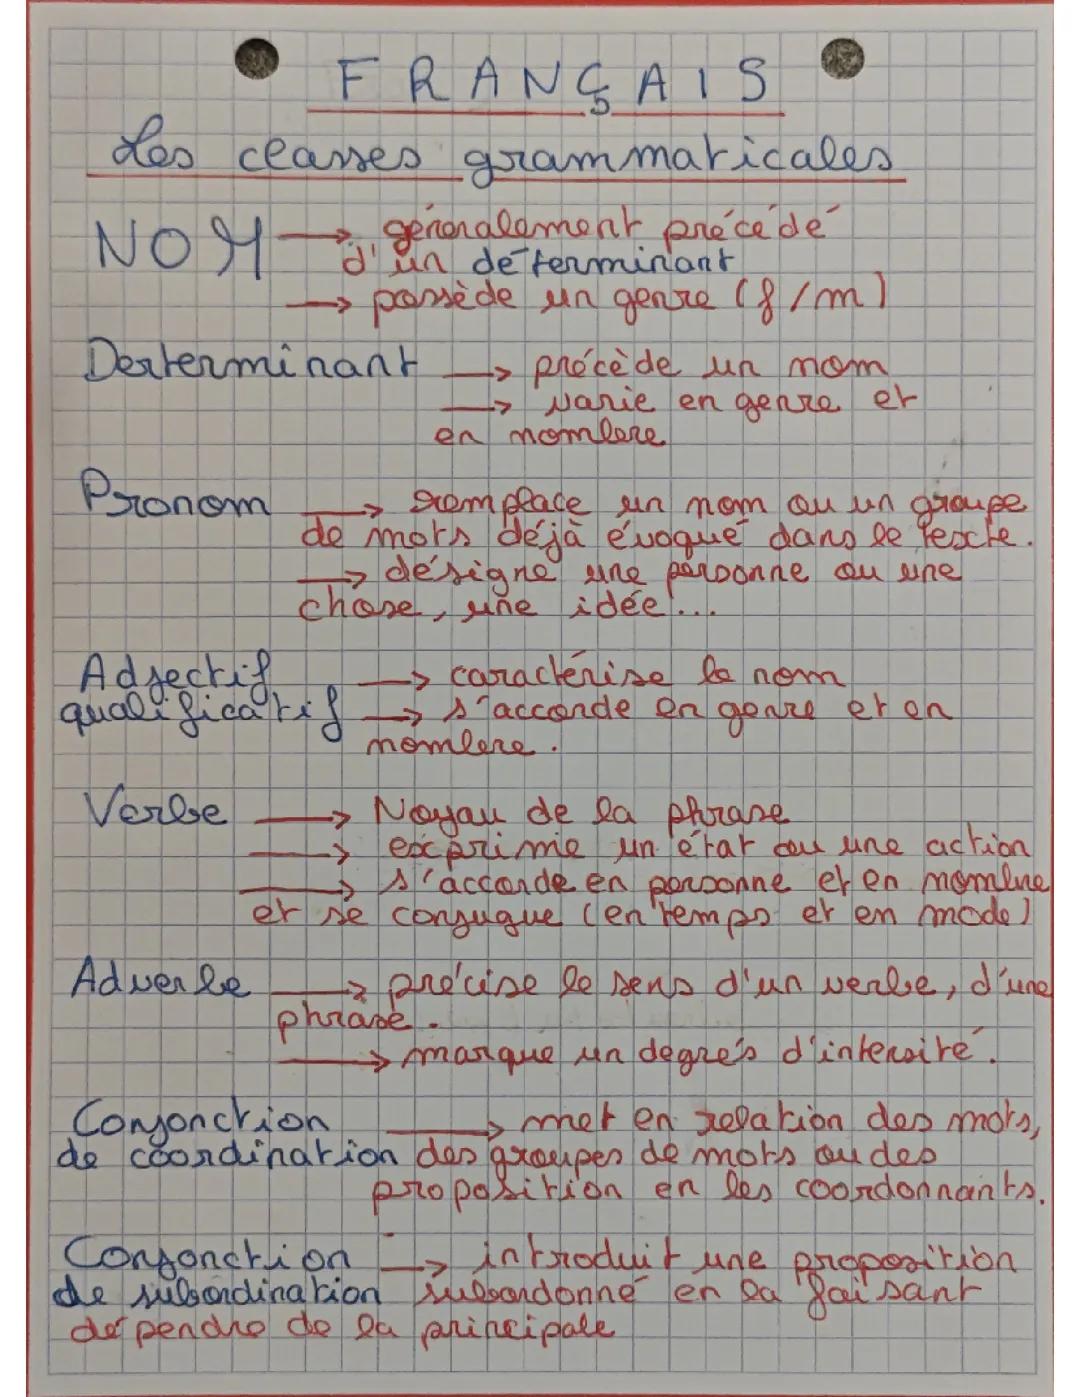 FRANÇAIS
Les classes grammaticales
NOM → généralement précédé
d'un déterminant
→ possède un genre (f/m)
Derterminant → précède un nom
→ varie en genre et
en nombre
Pronom → remplace un nom ou un groupe
de mots déjà évoqué dans le texte.
→ désigne une personne ou une
chose, une idée...
Adjectif → caractérise le nom
qualificatif → s'accorde en genre et en
nombre.
Verbe → Noyau de la phrase
→ exprime un état ou une action
→ s'accorde en personne et en nombre
et se conjugue (en temps et en mode)
Adverbe → précise le sens d'un verbe, d'une
phrase.
→ marque un degrés d'intensité.
Conjonction → met en relation des mots,
de coordination des groupes de mots ou des
proposition en les coordonnants.
Conjonction → introduit une proposition
de subordination subordonné en la faisant
dépendre de la principale